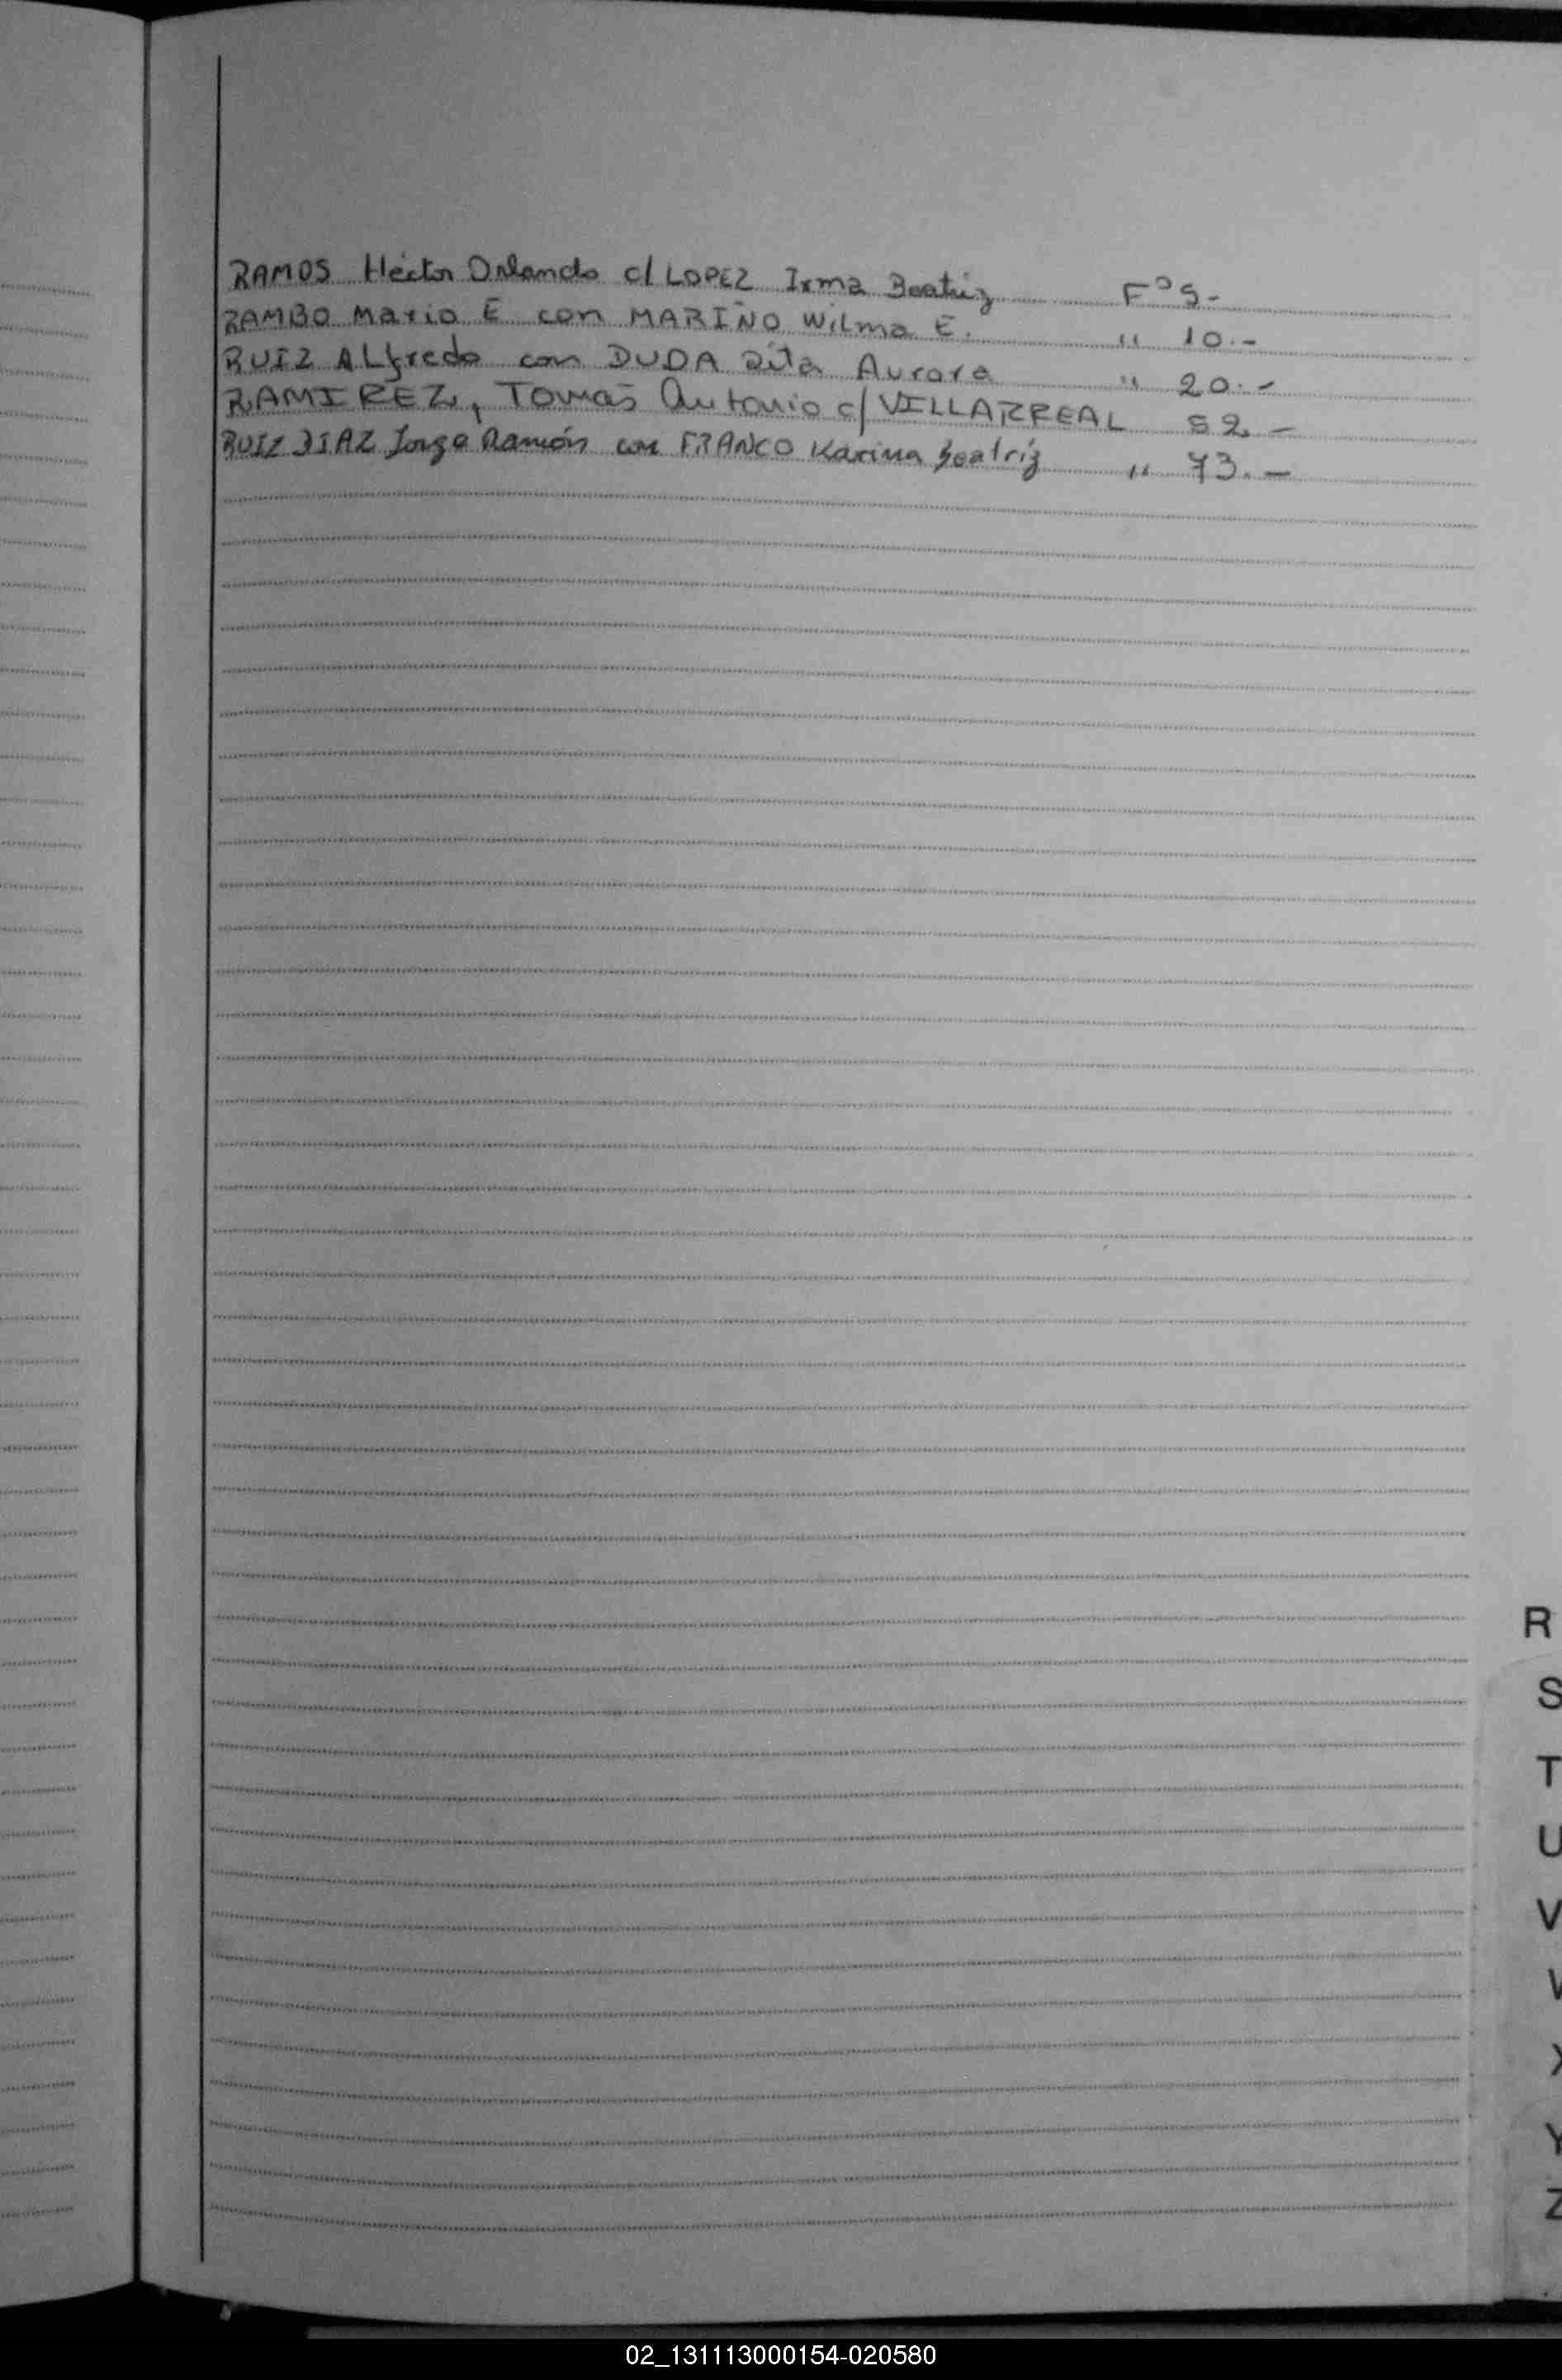 RAMOS Héctor Orlando c/ LOPEZ Irma Beatriz F° 5-
RAMBO Mario E con MARIÑO Wilma E. " 10.-
RUIZ ALfredo con DUDA Rita Aurora " 20.-
RAMIREZ, Tomás Antonio c/ VILLARREAL 52.-
RUIZ DIAZ Jorge Ramón con FRANCO Karina Beatríz " 73.-
R
S
T
U
V
Y
Z
02_131113000154-020580